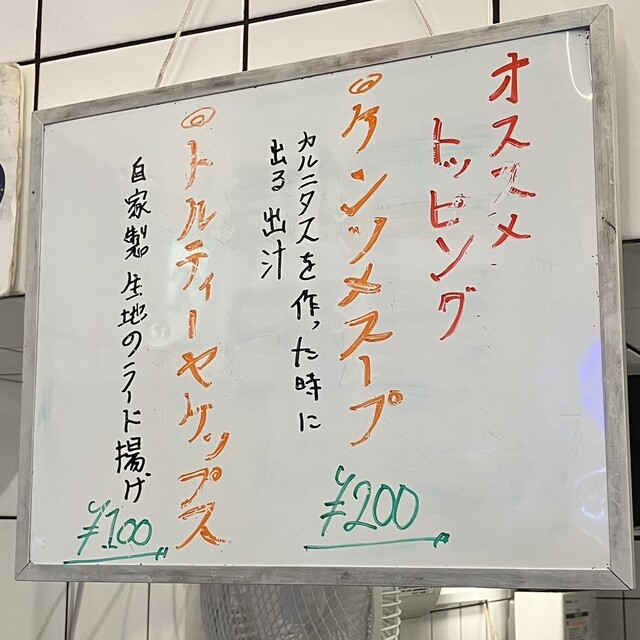 オススメ
トッピング
◎ケンソメスープ
カルニタスを作った時に
出る出汁
¥200
◎トルティーヤケップス
自家製生地のラード揚げ
¥100